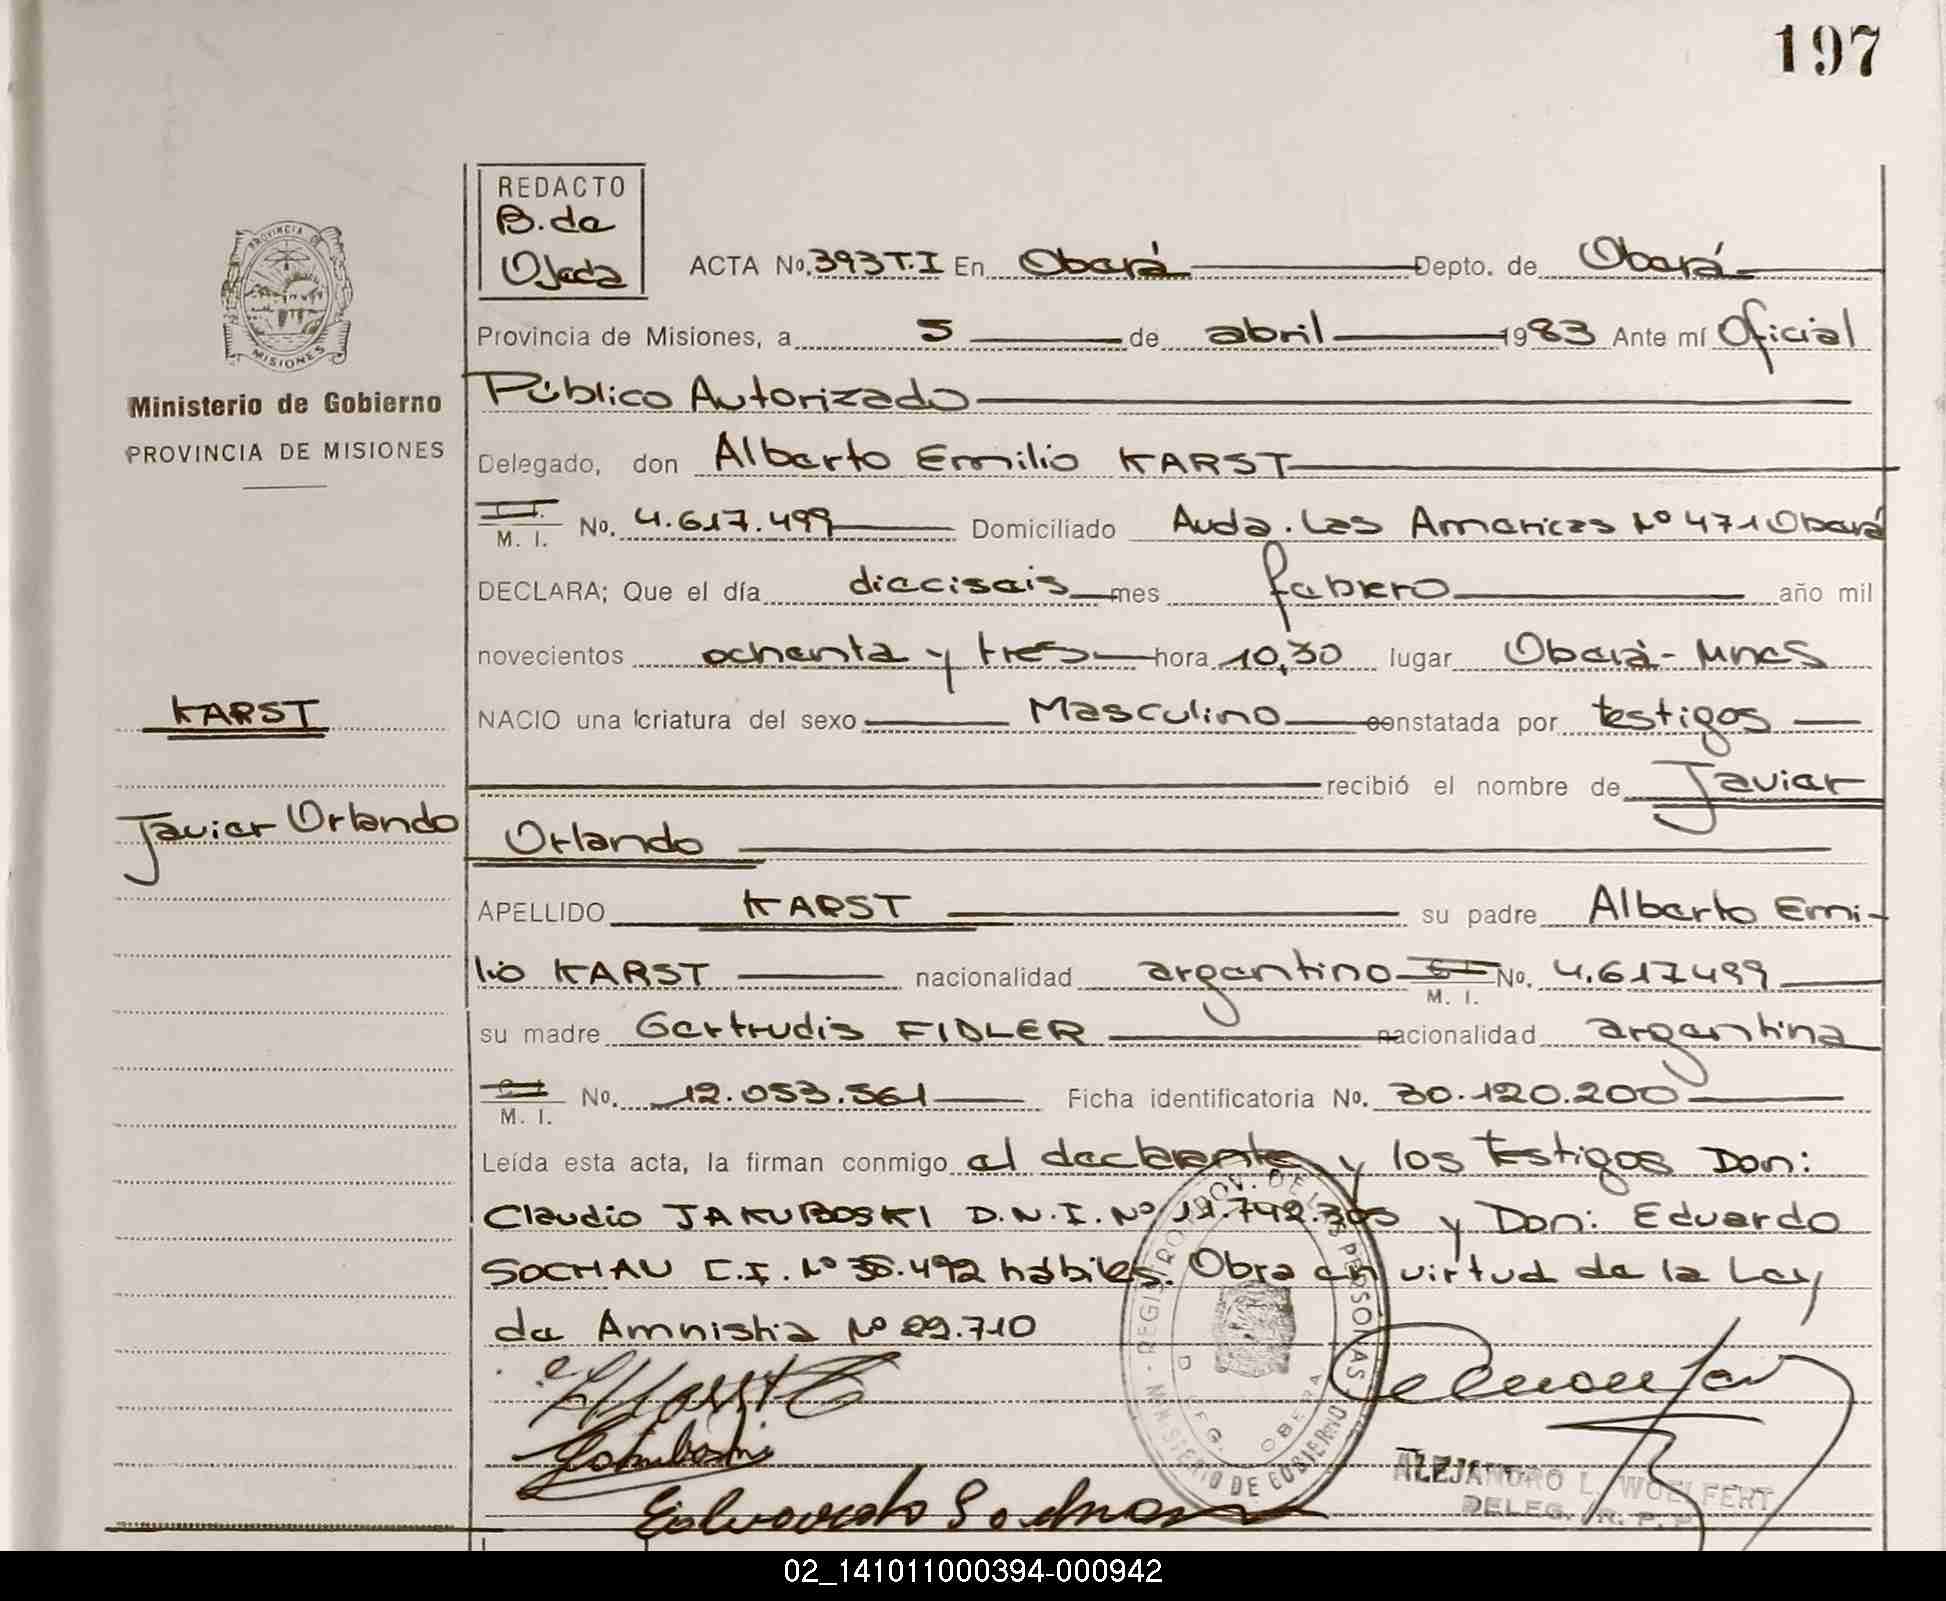 197
REDACTO
B. de
Ojeda
ACTA No. 393 T.I En Oberá Depto. de Oberá
PROVINCIA DE
MISIONES
Provincia de Misiones, a 5 de abril 1983 Ante mí Oficial
Ministerio de Gobierno
Público Autorizado
PROVINCIA DE MISIONES
Delegado, don Alberto Emilio KARST
M. I. No. 4.617.499 Domiciliado Avda. Las Americas Nº 471 Oberá
DECLARA; Que el día dieciseis mes febrero año mil
novecientos ochenta y tres hora 10,30 lugar Oberá - Mnes
KARST
NACIO una criatura del sexo Masculino constatada por testigos
recibió el nombre de Javier
Javier Orlando
Orlando
APELLIDO KARST su padre Alberto Emi-
lio KARST nacionalidad argentino M. I. No. 4.617499
su madre Gertrudis FIDLER nacionalidad argentina
M. I. No. 12.053.561 Ficha identificatoria No. 30.120.200
Leída esta acta, la firman conmigo el declarante y los testigos Don:
Claudio JAKUBOSKI D.N.I. Nº y Don: Eduardo
SOCHAU C.I. Nº hábiles. Obra en virtud de la Ley
de Amnistia Nº 22.710
REGISTRO PROV. DE LAS PERSONAS
MINISTERIO DE GOBIERNO
DELEG. OBERA
Eduardo
ALEJANDRO L. WOELFERT
DELEG. R. P. P.
02_141011000394-000942